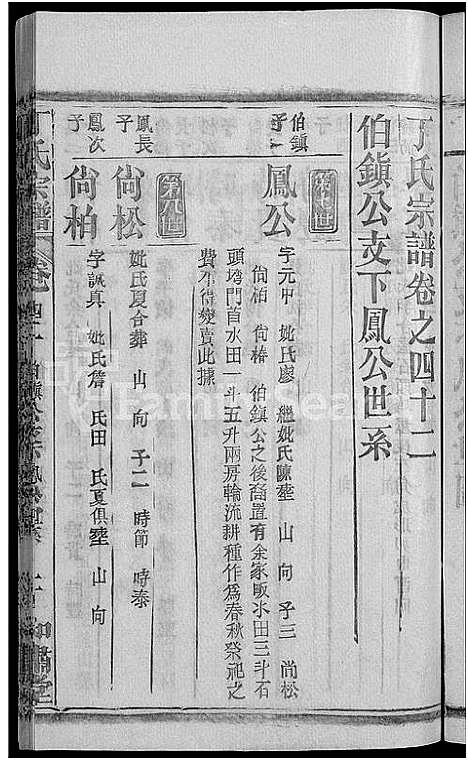 丁氏宗譜卷之四十二
伯鎮公支下鳳公世系
第七世
伯鎮
子一
鳳公
字元中 妣氏廖 繼妣氏陳塟 山 向 子三 尚松
尚柏 尚椿 伯鎮公之後裔置有余家畈水田三斗石
頭塆門首水田一斗五升兩房輪流耕種作爲春秋祭祀之
費不得變賣此據
第八世
鳳長
子
尚松
妣氏夏合塟 山 向 子二 時節 時泰
鳳次
子
尚柏
字誠真 妣氏詹 氏田 氏夏俱塟 山 向
丁氏宗譜